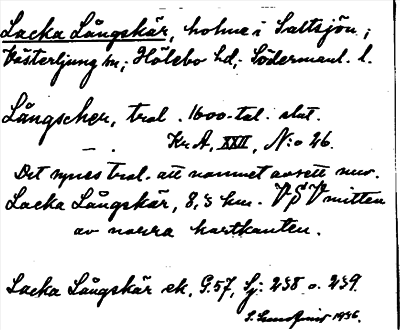 Lacka Långskär, holme i Saltsjön;
Västerljung sn; Hölebo hd; Södermanl. l.
Långscher, trol. 1600-tal. slut.
— . Kr A, XXII, N:o 26.
Det synes trol. att namnet avsett nuv.
Lacka Långskär, 8,3 km. VSV mitten
av norra kartkanten.
Lacka Långskär ek. G.57, Sj: 238 o. 239.
1936.